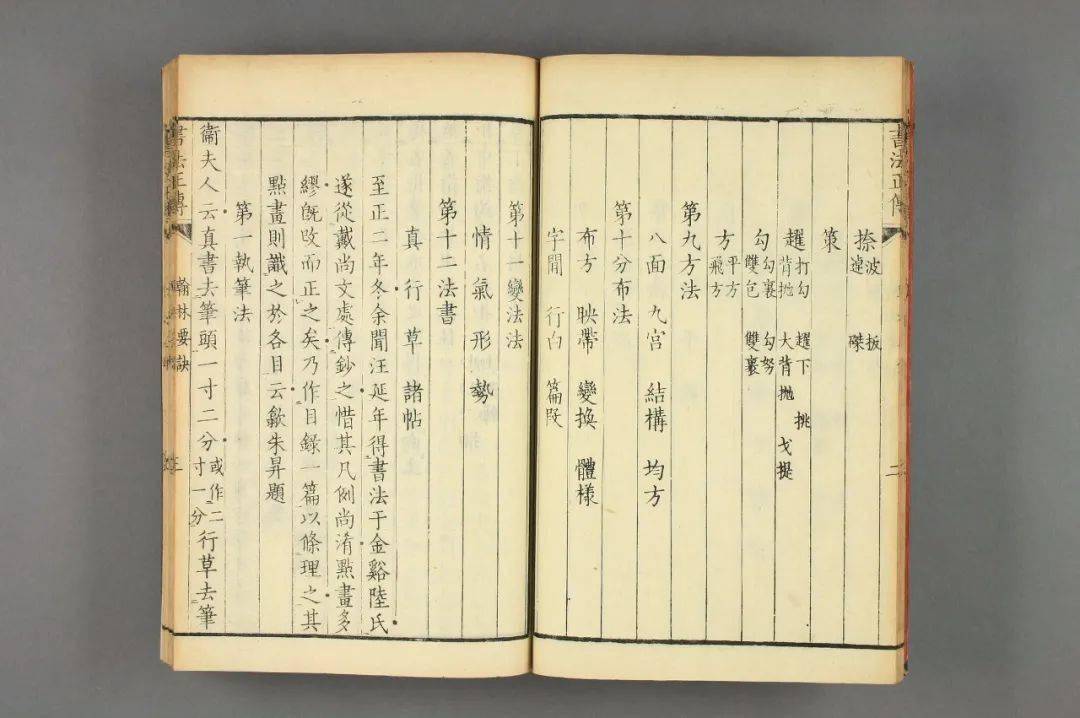 書法正傳
二
捺 波 扳
磔
策
趯 打勾 趯下 挑
背抛 大背抛 戈提
勾 勾裏 勾努
雙包 雙裏
方 平方
飛方
第九方法
八面 九宫 結構 均方
第十分布法
布方 映帶 變換 體樣
字間 行白 篇段
第十一變法法
情 氣 形 勢
第十二法書
真 行 草 諸帖
至正二年冬余聞汪延年得書法于金谿陸氏
遂從戴尚文處傳鈔之惜其凡例尚淆點畫多
繆旣攷而正之矣乃作目錄一篇以條理之其
點畫則識之於各目云歙朱昇題
第一執筆法
衞夫人云真書去筆頭一寸二分或作二寸一分行草去筆
書法正傳
翰林要訣
三